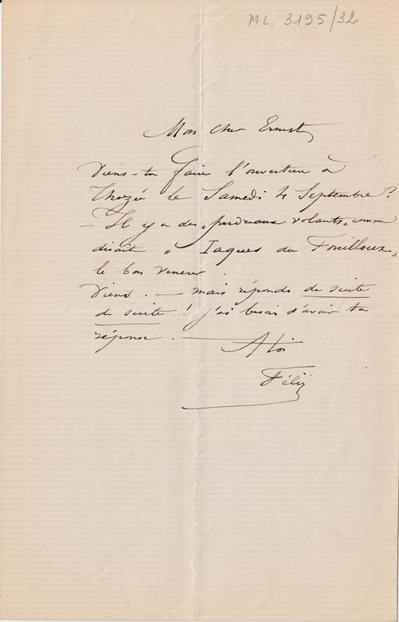 ML. 3195/32
Mon cher Ernest,
Viens-tu faire l'ouverture à
Thozée le Samedi 4 Septembre?
- Il y a des „perdreaux volants„ comme
disait „ Iaques du Fouilloux„
le bon veneur.
Viens. - mais réponds de suite
de suite! j'ai besoin d'avoir ta
réponse. -
A toi
Félix